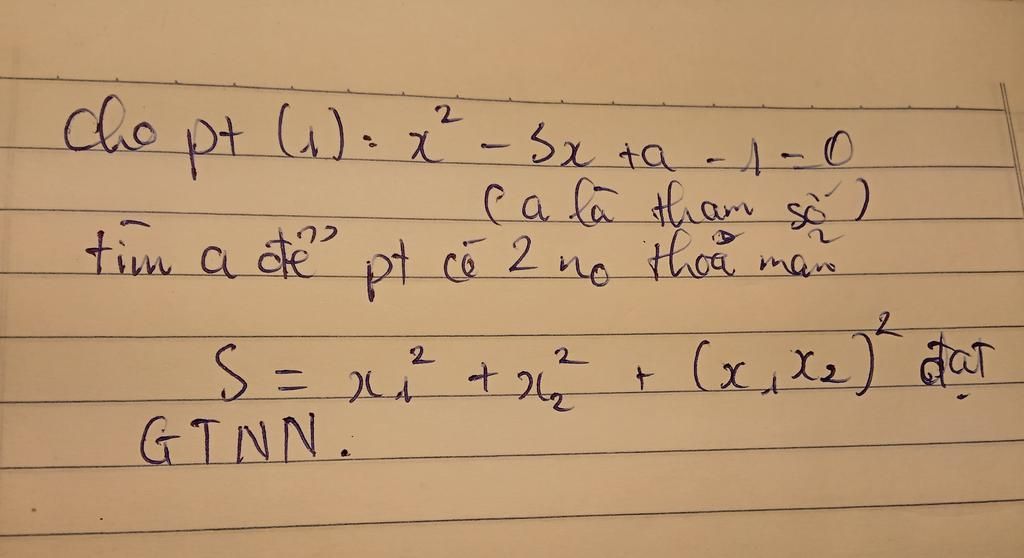 Cho pt (1): x² - 5x + a - 1 = 0
(a là tham số)
tìm a để pt có 2 no thoả mãn
S = x₁² + x₂² + (x₁x₂)² đạt
GTNN.